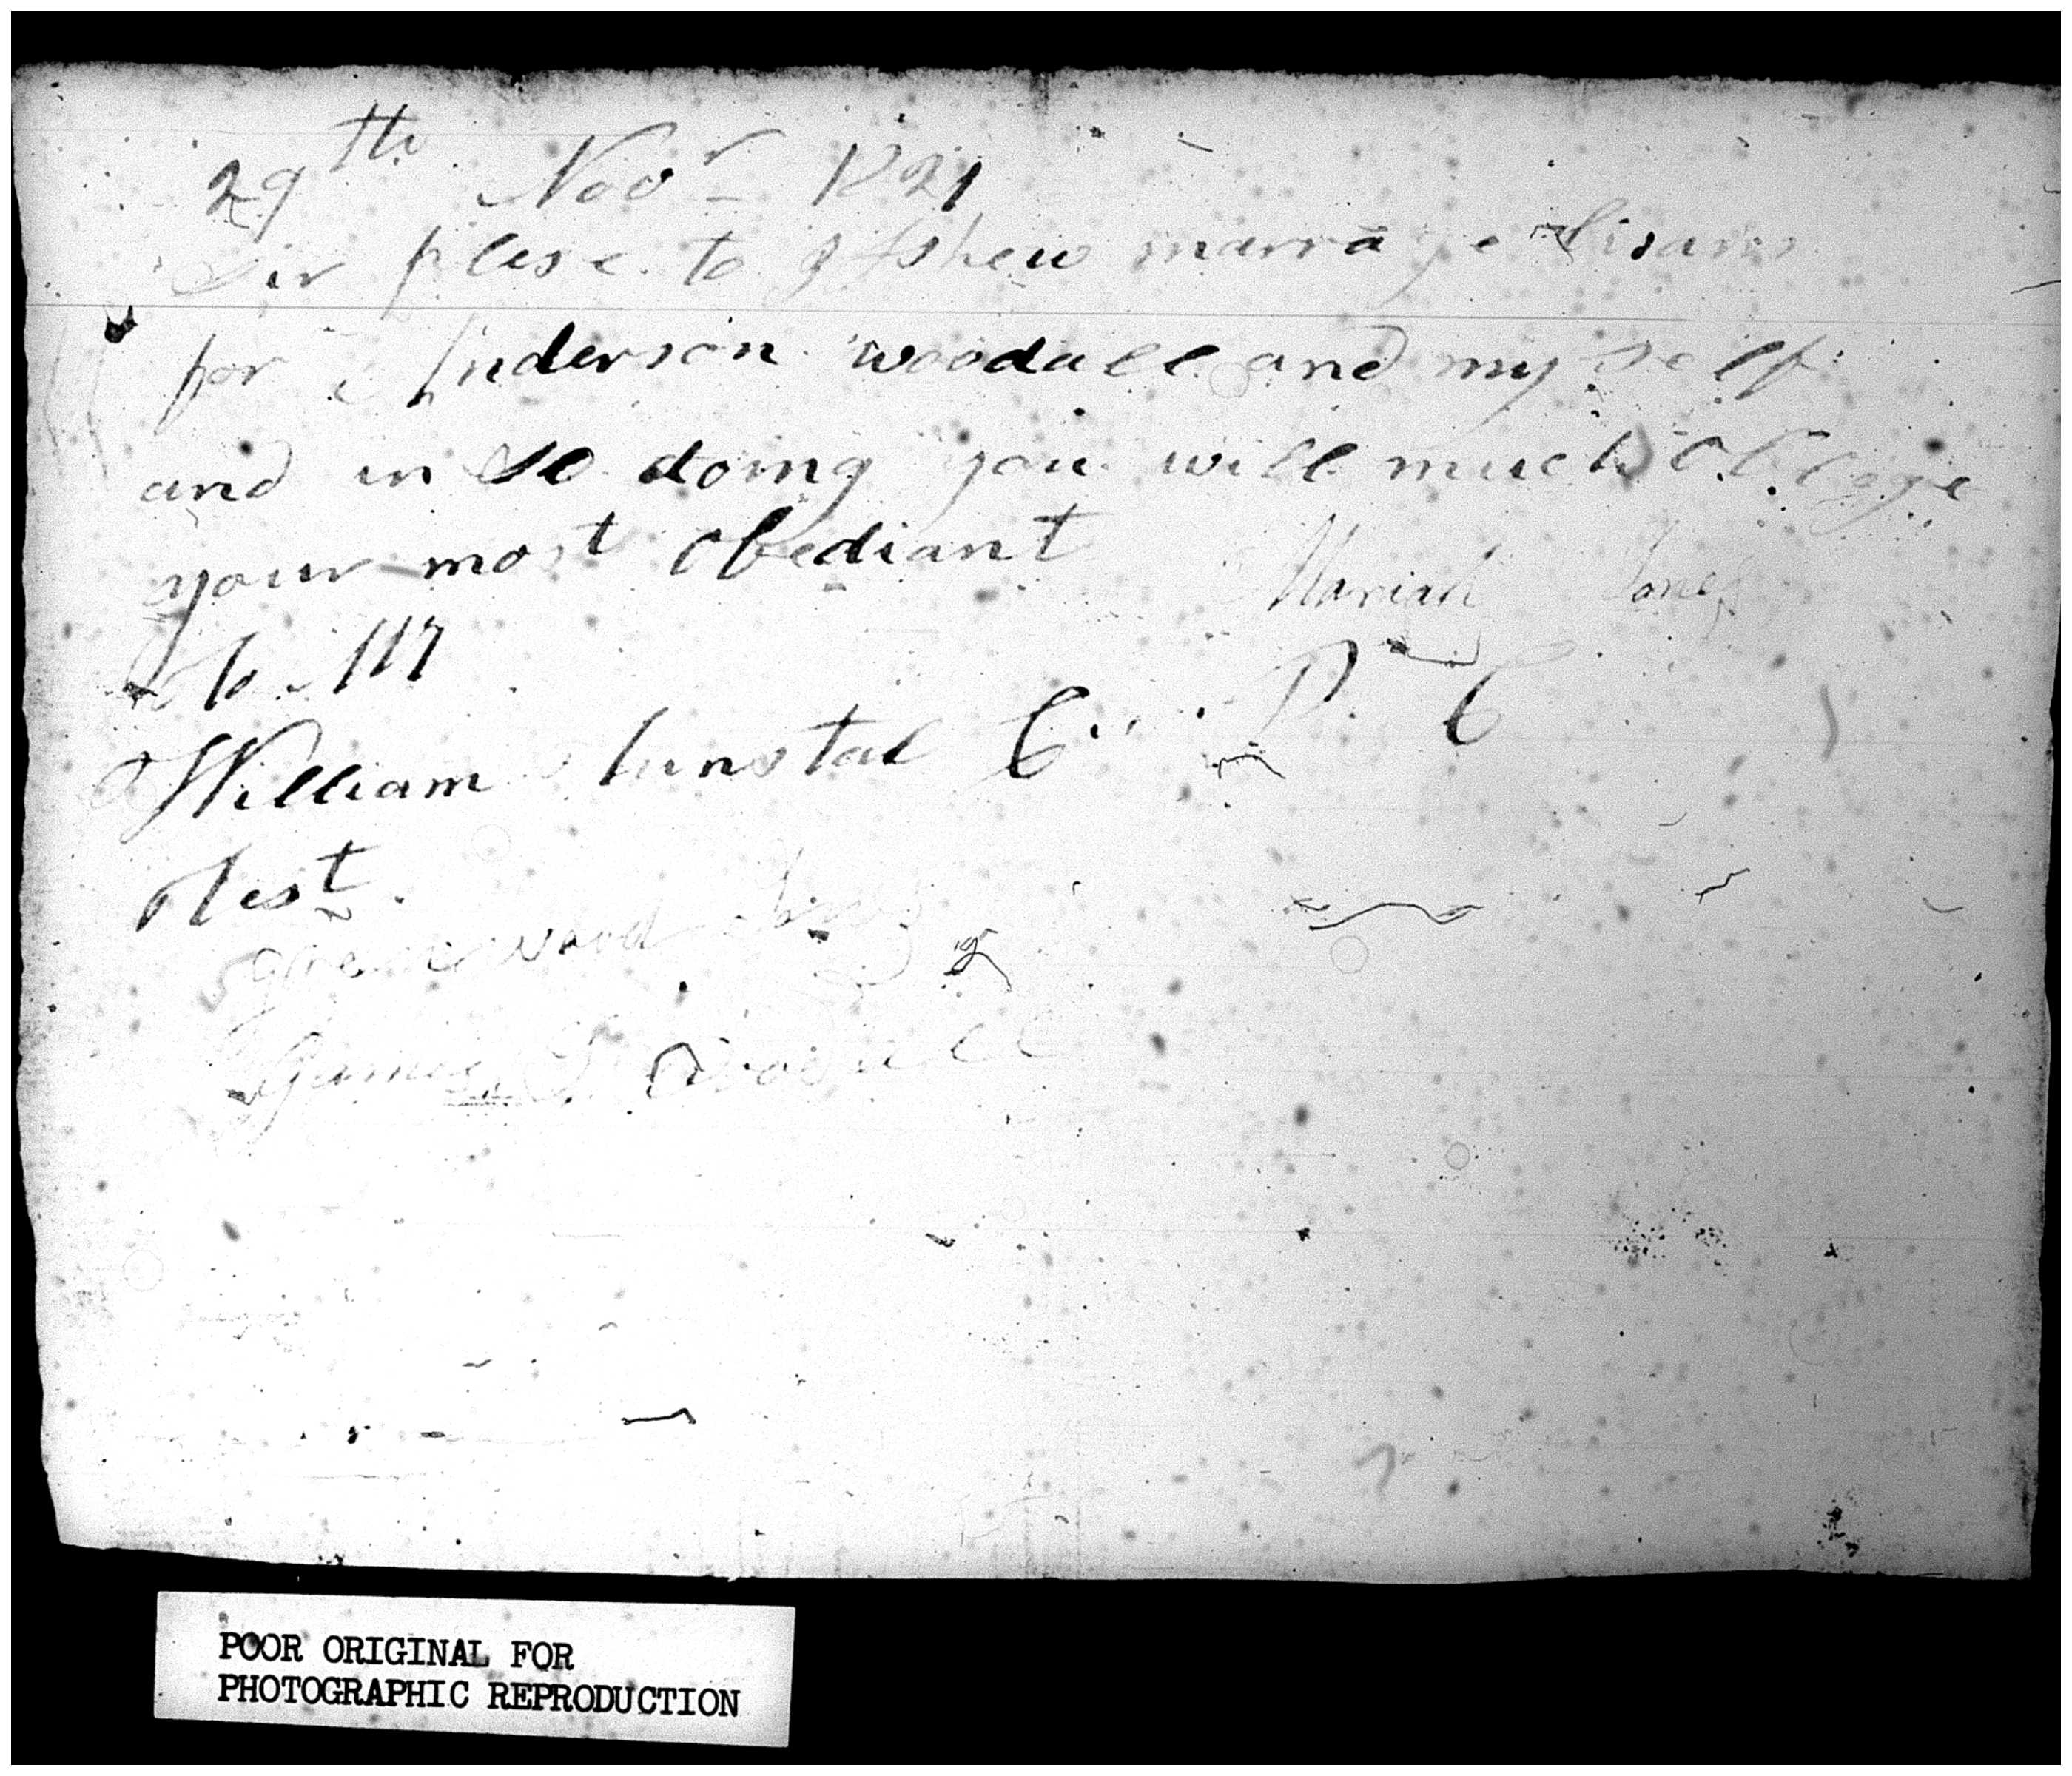 29th Novr 1821
Sir plese to Isshew marrage lisans
for Anderson woodall and my self
and in so doing you will much Oblige
your most Obediant Mariah Jones
To Mr
William Tunstal C. P. C
Test
greenwood Jones
James Woodall
POOR ORIGINAL FOR
PHOTOGRAPHIC REPRODUCTION